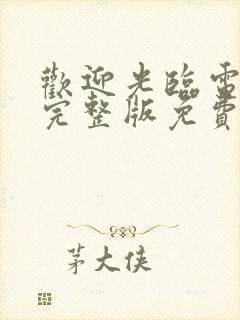 歡迎光臨電
完整版免費
茅大俠